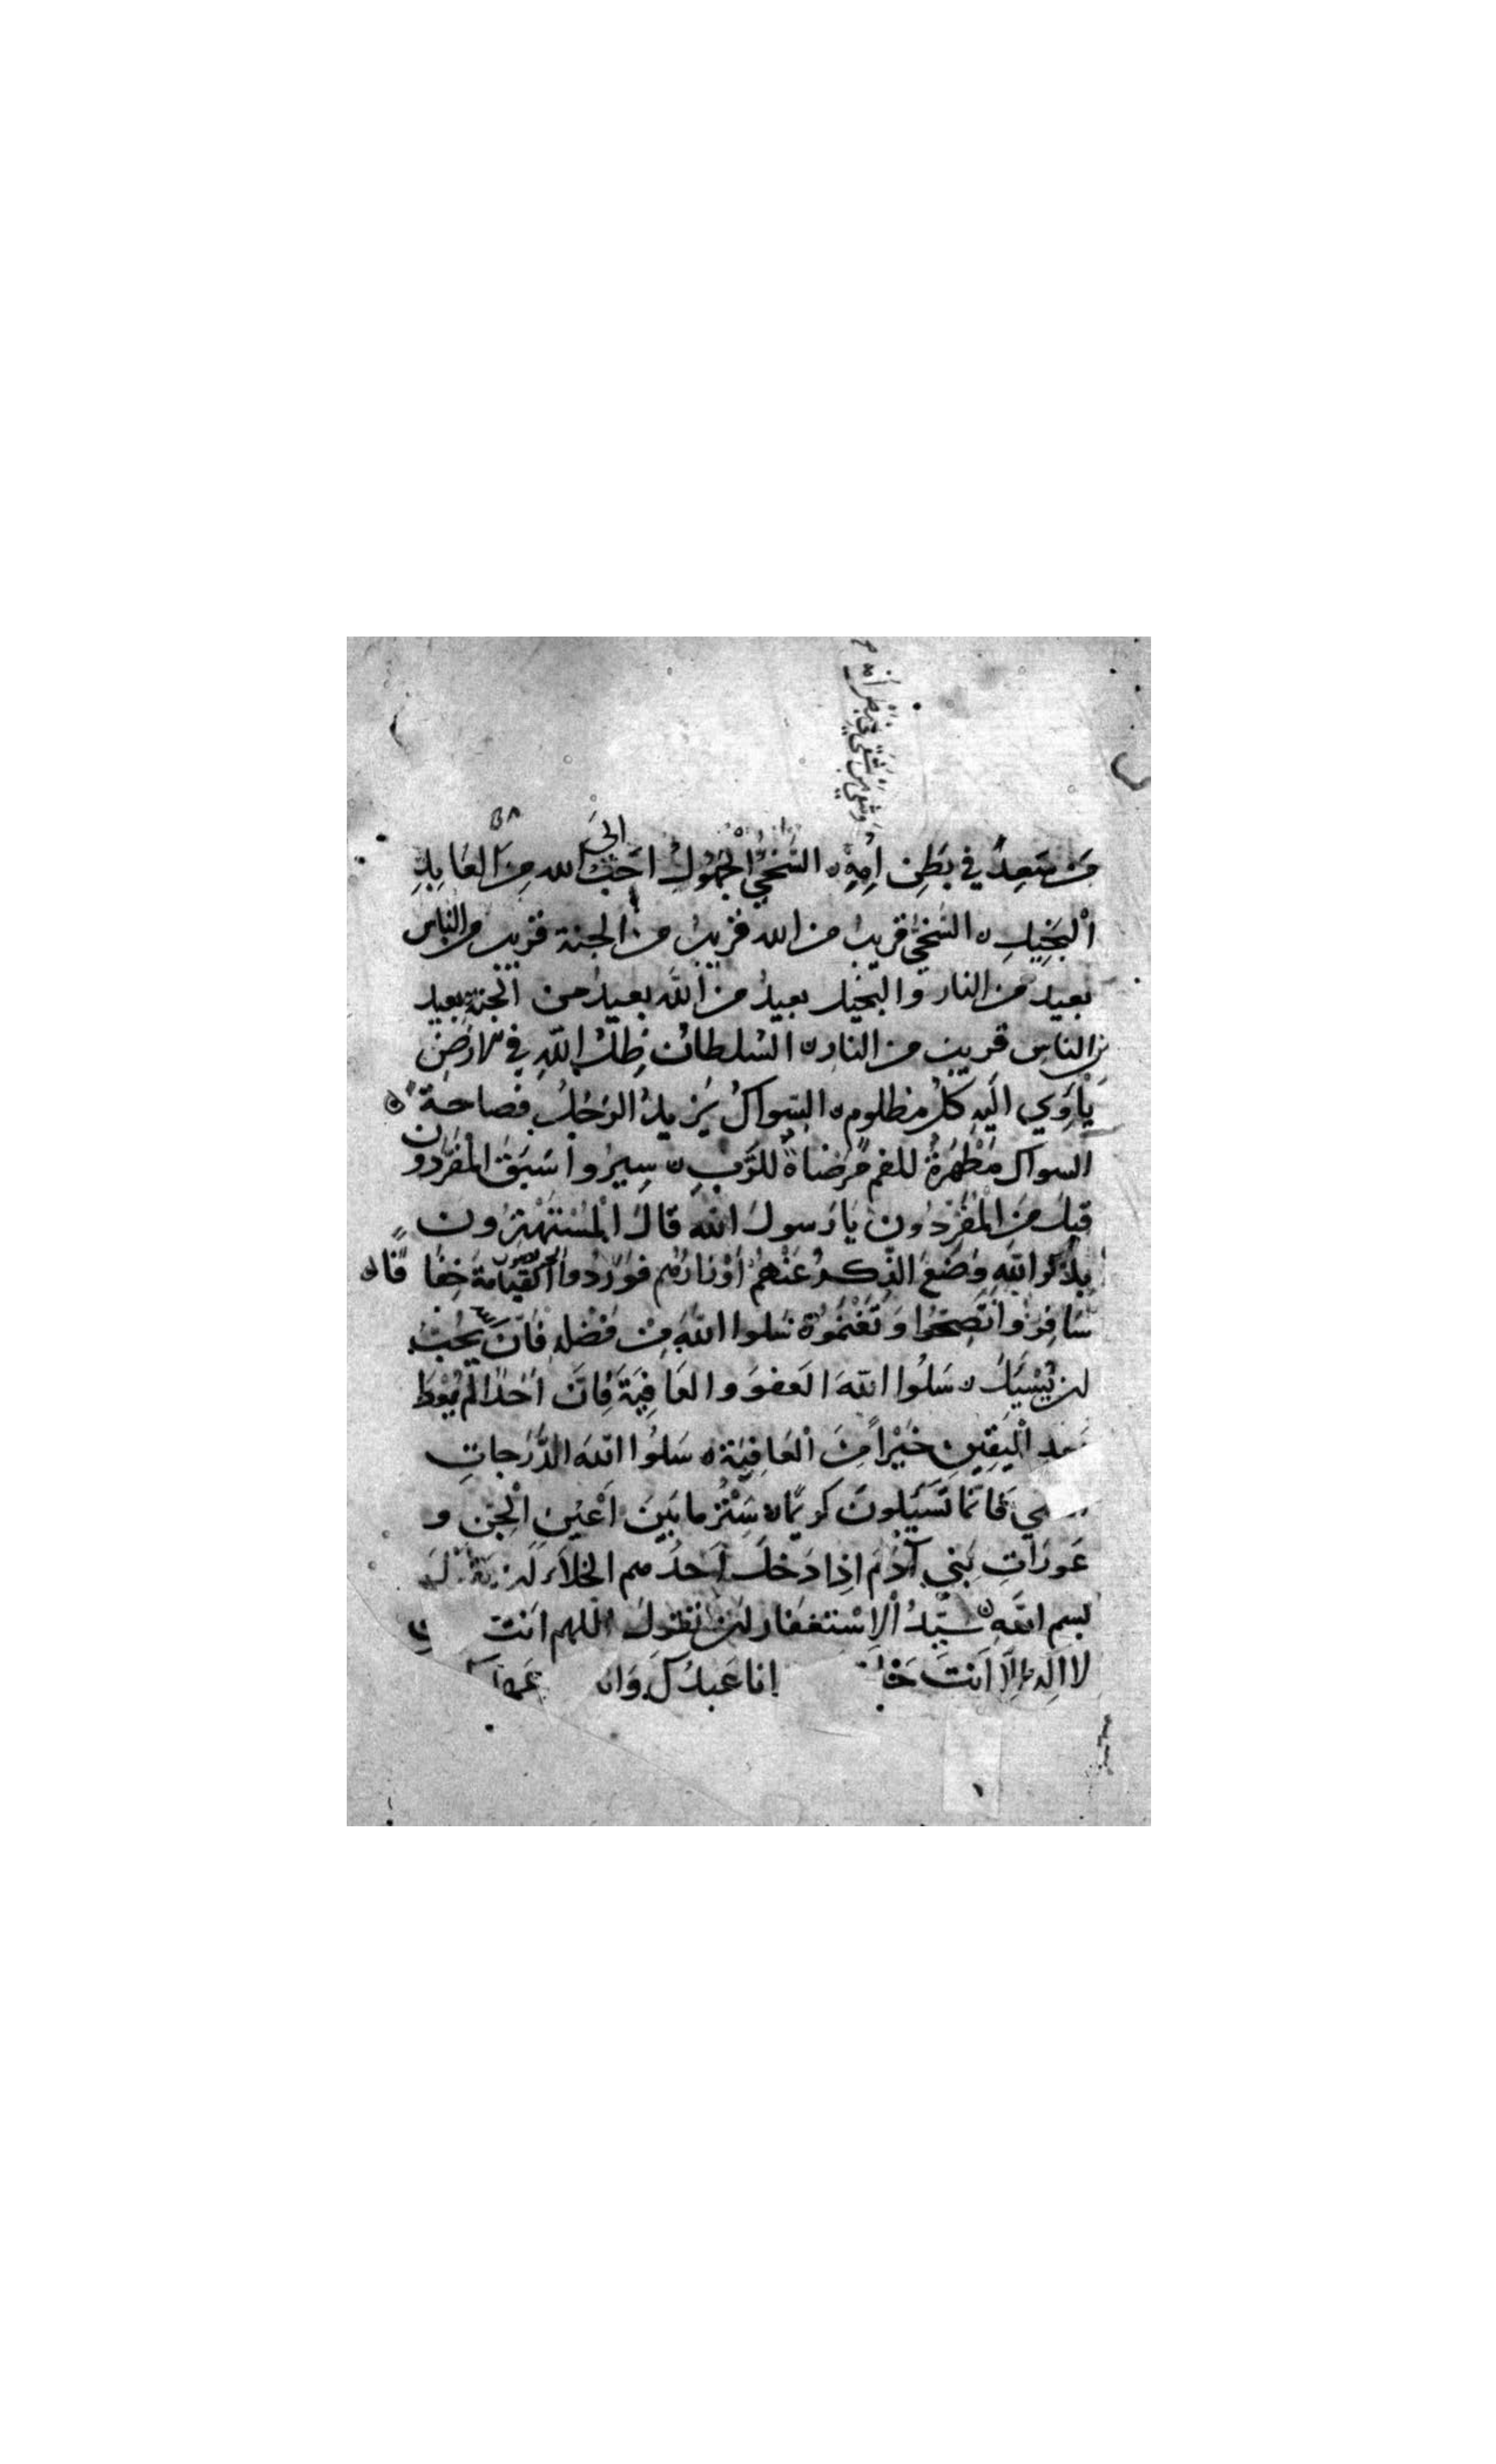 والشقي من شقي في بطن أمه
مَن سَعِدَ في بَطنِ اُمِهِ ه السَّخيُّ الجَهُولُ احَبُّ الىَ الله مِنَ العَابِدِ
اْلبَخِيلِ ه السَّخيُّ قريبٌ من الله قريبٌ منَ الجنة قريبٌ من الناس
بعيدٌ من النار والبخيل بعيدٌ من اللهِ بعيدٌ من الجنةِ بعيد
من الناس قريب من النار ه السُلطانُ ظِلُّ اللهِ في الارضِ
يَأوِي اليهِ كلُّ مظلوم ه السِواكُ يَزيدُ الرَجُلَ فصاحةً ه
السواك مَطْهَرَةٌ للفم مَرْضَاةٌ للرَّبِ ه سِيرُوا سَبَقَ المُفَرِّدونَ
قيلَ مَنَ المُفَرِّدُون يَا رَسولَ الله قالَ اْلمُسْتَهْتِرُونَ
بذِكرِ اللهِ وَضَعَ الذِّكرُ عَنْهُمْ اَوْزَارَهُم فوَرَدُوا القِيَامَةَ خِفَافًا ه
سَافِرُوا تَصِحُّوا وَتَغْنَمُوا ه سَلوا اللهَ مِنْ فَضْلِهِ فَاِنَّ يُحِبُّ
ان يُسْئَلَ ه سَلُوا اللهَ العَفوَ والعَافِيَةَ فَاِنَّ اَحَدًا لم يُعْطَ
بعد اْليَقِينِ خَيْراً مِنَ اْلعَافِيَةِ ه سَلُوا اللهَ الدَّرَجاتِ
فَانَّمَا تَسْئَلونَ كَريمًا ه سِتْرُ مابَيْنَ اَعْيُنِ الْجِنِّ و
عَورَاتِ بَني آدَمَ اِذا دَخلَ اَحدُهم الخلاءَ ان يَقُولَ
بسم اللهِ ه سَيِّدُ اْلاسْتغفار ان تقولَ اللهم انت
لا اِلهَ اِلَّا اَنتَ انا عَبدُكَ وَانا